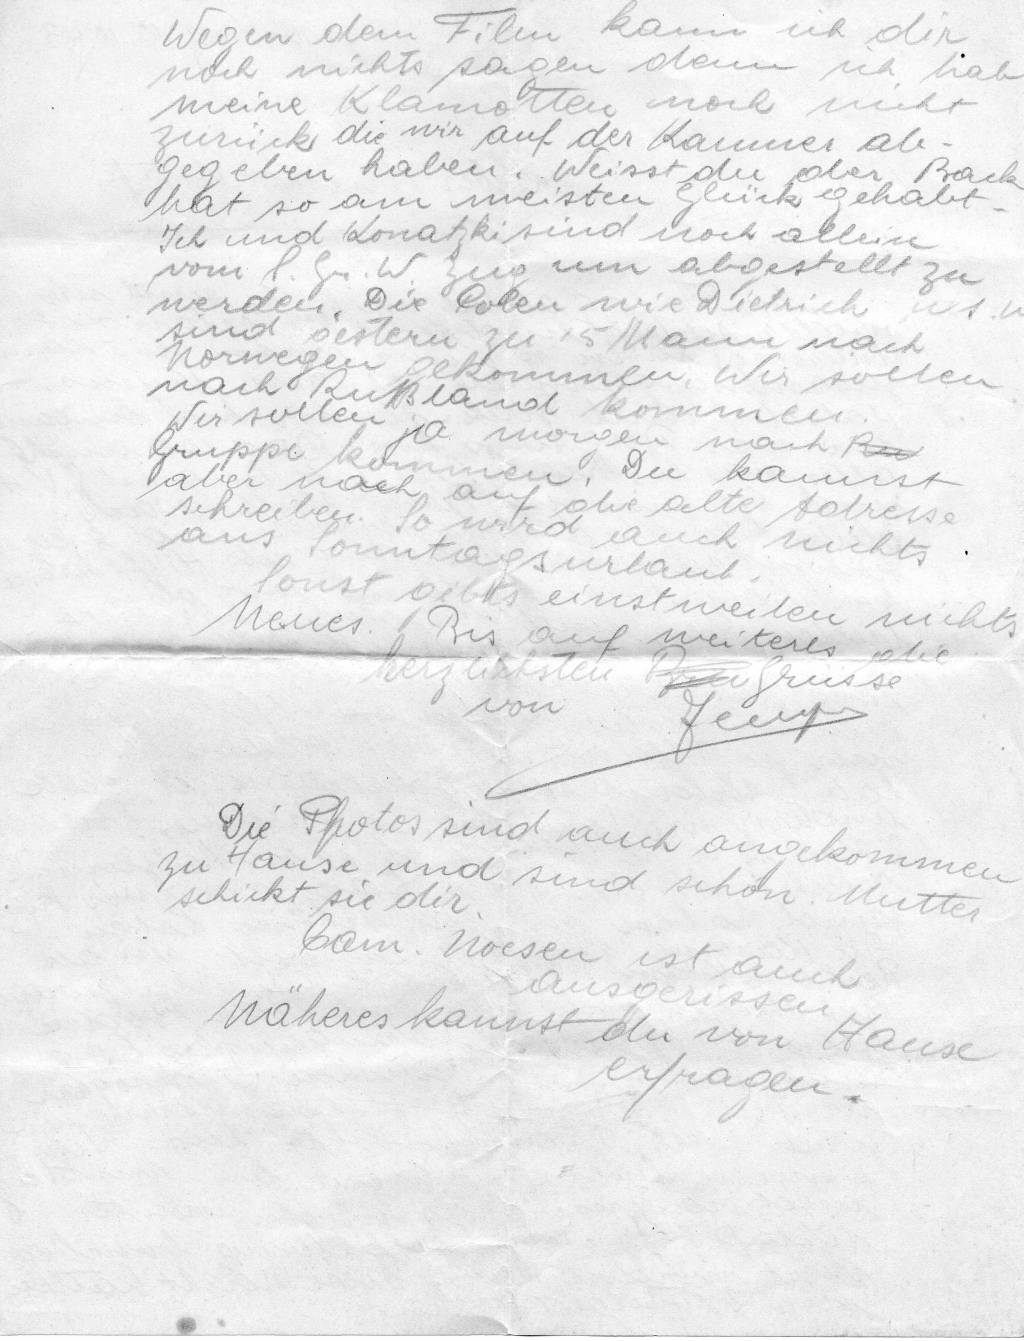 Wegen dem Film kann ich dir
noch nichts sagen denn ich hab
meine Klamotten noch nicht
zurück die wir auf der Kammer ab-
gegeben haben. Weisst du der Back
hat so am meisten Glück gehabt-
Ich und Konatzki sind noch allein
vom l. Gr. W. Zug um abgestellt zu
werden. Die Colen wie Dietrich u.s.w
sind gestern zu 15 Mann nach
Norwegen gekommen. Wir sollen
nach Rußland kommen.
Wir sollen ja morgen nach
Gruppe kommen. Du kannst
aber noch auf die alte Adresse
schreiben. So wird auch nichts
aus Sonntagsurlaub.
Sonst gibts einstweilen nichts
Neues. Bis auf weiteres die
herzlichsten Grüsse
von Jemp
Die Photos sind auch angekommen
zu Hause und sind schön. Mutter
schickt sie dir.
Cam. Noesen ist auch
ausgerissen
Näheres kannst du von Hause
erfragen.